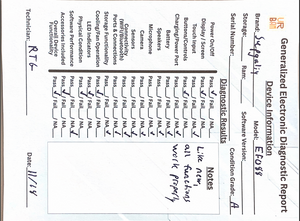 Generalized Electronic Diagnostic Report
Device Information
Brand: Model: EF098
Storage: Ram: Software Version:
Serial Number: Condition Grade: A
Diagnostic Results
Power On/Off Pass Fail NA
Display / Screen Pass Fail NA
Touch Input Pass Fail NA
Buttons/Controls Pass Fail NA
Charging/Power Port Pass Fail NA
Battery Pass Fail NA
Speaker Pass Fail NA
Microphone Pass Fail NA
Camera Pass Fail NA
Sensors Pass Fail NA
Connectivity
(WiFi/Bluetooth) Pass Fail NA
Ports & Connections Pass Fail NA
Storage Functionality Pass Fail NA
Cooling/Fan Operation Pass Fail NA
LED Indicators Pass Fail NA
Physical Condition Pass Fail NA
Software Performance Pass Fail NA
Accessories Included Pass Fail NA
Notes
Like new,
all functions
work properly
Technician: RTG Date: 11/14